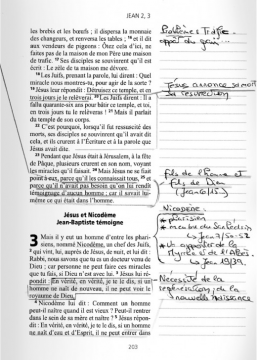 JEAN 2, 3
les brebis et les bœufs ; il dispersa la monnaie
des changeurs, et renversa les tables ; 16 et il dit
aux vendeurs de pigeons : Ôtez cela d'ici, ne
faites pas de la maison de mon Père une maison
de trafic. 17 Ses disciples se souvinrent qu'il est
écrit : Le zèle de ta maison me dévore.
18 Les Juifs, prenant la parole, lui dirent : Quel
miracle nous montres-tu, pour agir de la sorte ? 19
Jésus leur répondit : Détruisez ce temple, et en
trois jours je le relèverai. 20 Les Juifs dirent : Il a
fallu quarante-six ans pour bâtir ce temple, et toi,
en trois jours tu le relèveras ! 21 Mais il parlait
du temple de son corps.
22 C'est pourquoi, lorsqu'il fut ressuscité des
morts, ses disciples se souvinrent qu'il avait dit
cela, et ils crurent à l'Écriture et à la parole que
Jésus avait dite.
23 Pendant que Jésus était à Jérusalem, à la fête
de Pâque, plusieurs crurent en son nom, voyant
les miracles qu'il faisait. 24 Mais Jésus ne se fiait
point à eux, parce qu'il les connaissait tous, 25 et
parce qu'il n'avait pas besoin qu'on lui rendît
témoignage d'aucun homme ; car il savait lui-
même ce qui était dans l'homme.
Jésus et Nicodème
Jean-Baptiste témoigne
3 Mais il y eut un homme d'entre les phari-
siens, nommé Nicodème, un chef des Juifs,
2 qui vint, lui, auprès de Jésus, de nuit, et lui dit :
Rabbi, nous savons que tu es un docteur venu de
Dieu ; car personne ne peut faire ces miracles
que tu fais, si Dieu n'est avec lui. 3 Jésus lui ré-
pondit : En vérité, en vérité, je te le dis, si un
homme ne naît de nouveau, il ne peut voir le
royaume de Dieu.
4 Nicodème lui dit : Comment un homme
peut-il naître quand il est vieux ? Peut-il rentrer
dans le sein de sa mère et naître ? 5 Jésus répon-
dit : En vérité, en vérité, je te le dis, si un homme
ne naît d'eau et d'Esprit, il ne peut entrer dans
203
Jésus annonce sa mort
sa résurrection
fils de l'homme et
fils de Dieu
Nicodème :
* pharisien
* membre du Sanhédrin
Nécessité de la
nouvelle naissance